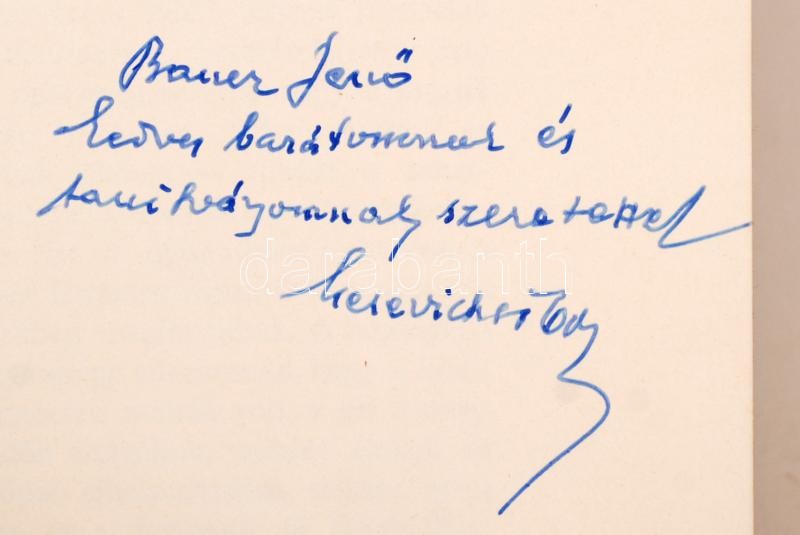 Bauer Jenő
kedves barátomnak és
tanítványomnak szeretettel
darabanth